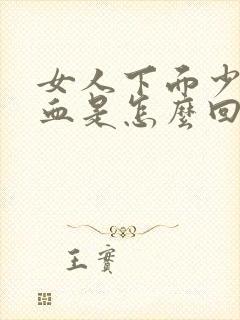 女人下面少
血是怎麼回
王實